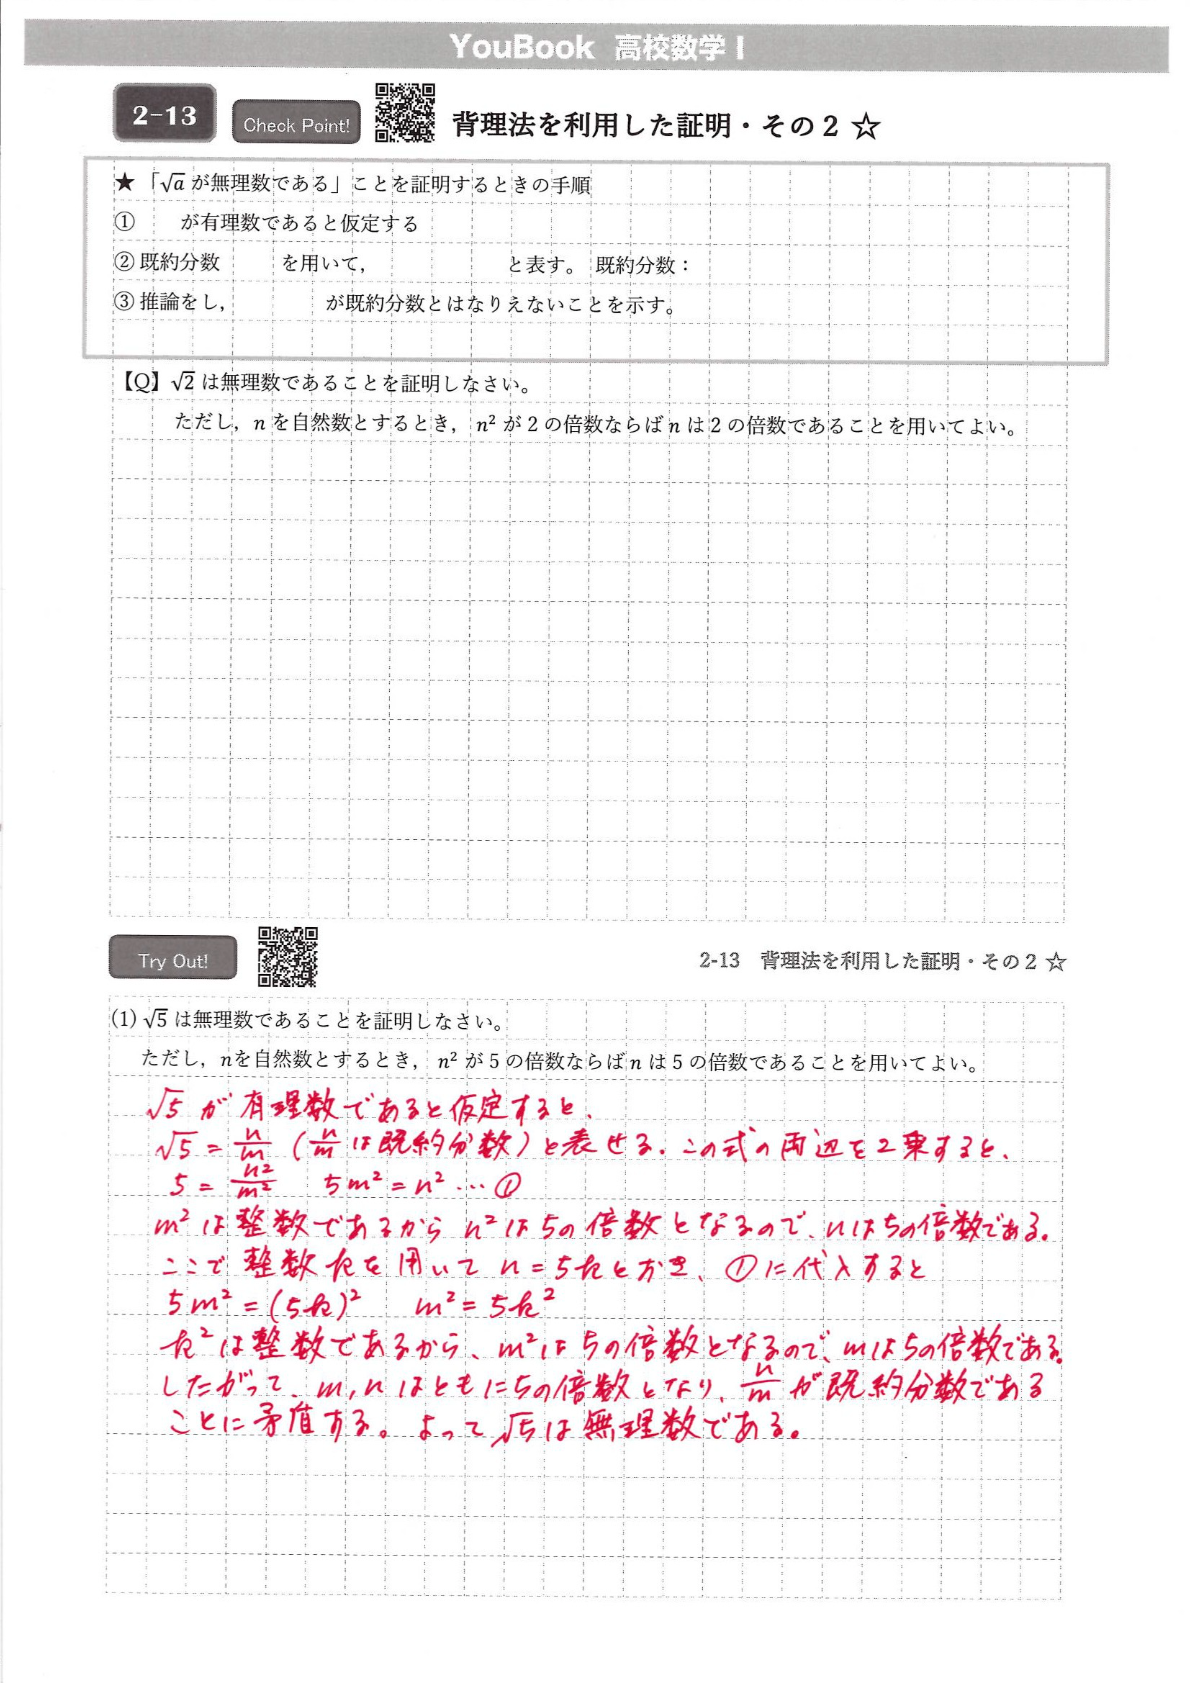 YouBook 高校数学 I
2-13 Check Point! 背理法を利用した証明・その2 ☆
★「√a が無理数である」ことを証明するときの手順
① が有理数であると仮定する
② 既約分数 を用いて, と表す。 既約分数：
③ 推論をし, が既約分数とはなりえないことを示す。
【Q】√2 は無理数であることを証明しなさい。
ただし, n を自然数とするとき, n² が 2 の倍数ならば n は 2 の倍数であることを用いてよい。
Try Out! 2-13 背理法を利用した証明・その2 ☆
(1) √5 は無理数であることを証明しなさい。
ただし, nを自然数とするとき, n² が 5 の倍数ならば n は 5 の倍数であることを用いてよい。
√5 が有理数であると仮定すると、
√5 = n/m (n/m は既約分数) と表せる。この式の両辺を2乗すると、
5 = n²/m² 5m² = n² … ①
m² は整数であるから n² は5の倍数となるので、nは5の倍数である。
ここで整数kを用いて n = 5k とおき、①に代入すると
5m² = (5k)² m² = 5k²
k² は整数であるから、m² は5の倍数となるので、mは5の倍数である。
したがって、m,n はともに5の倍数となり、n/m が既約分数である
ことに矛盾する。よって √5 は無理数である。